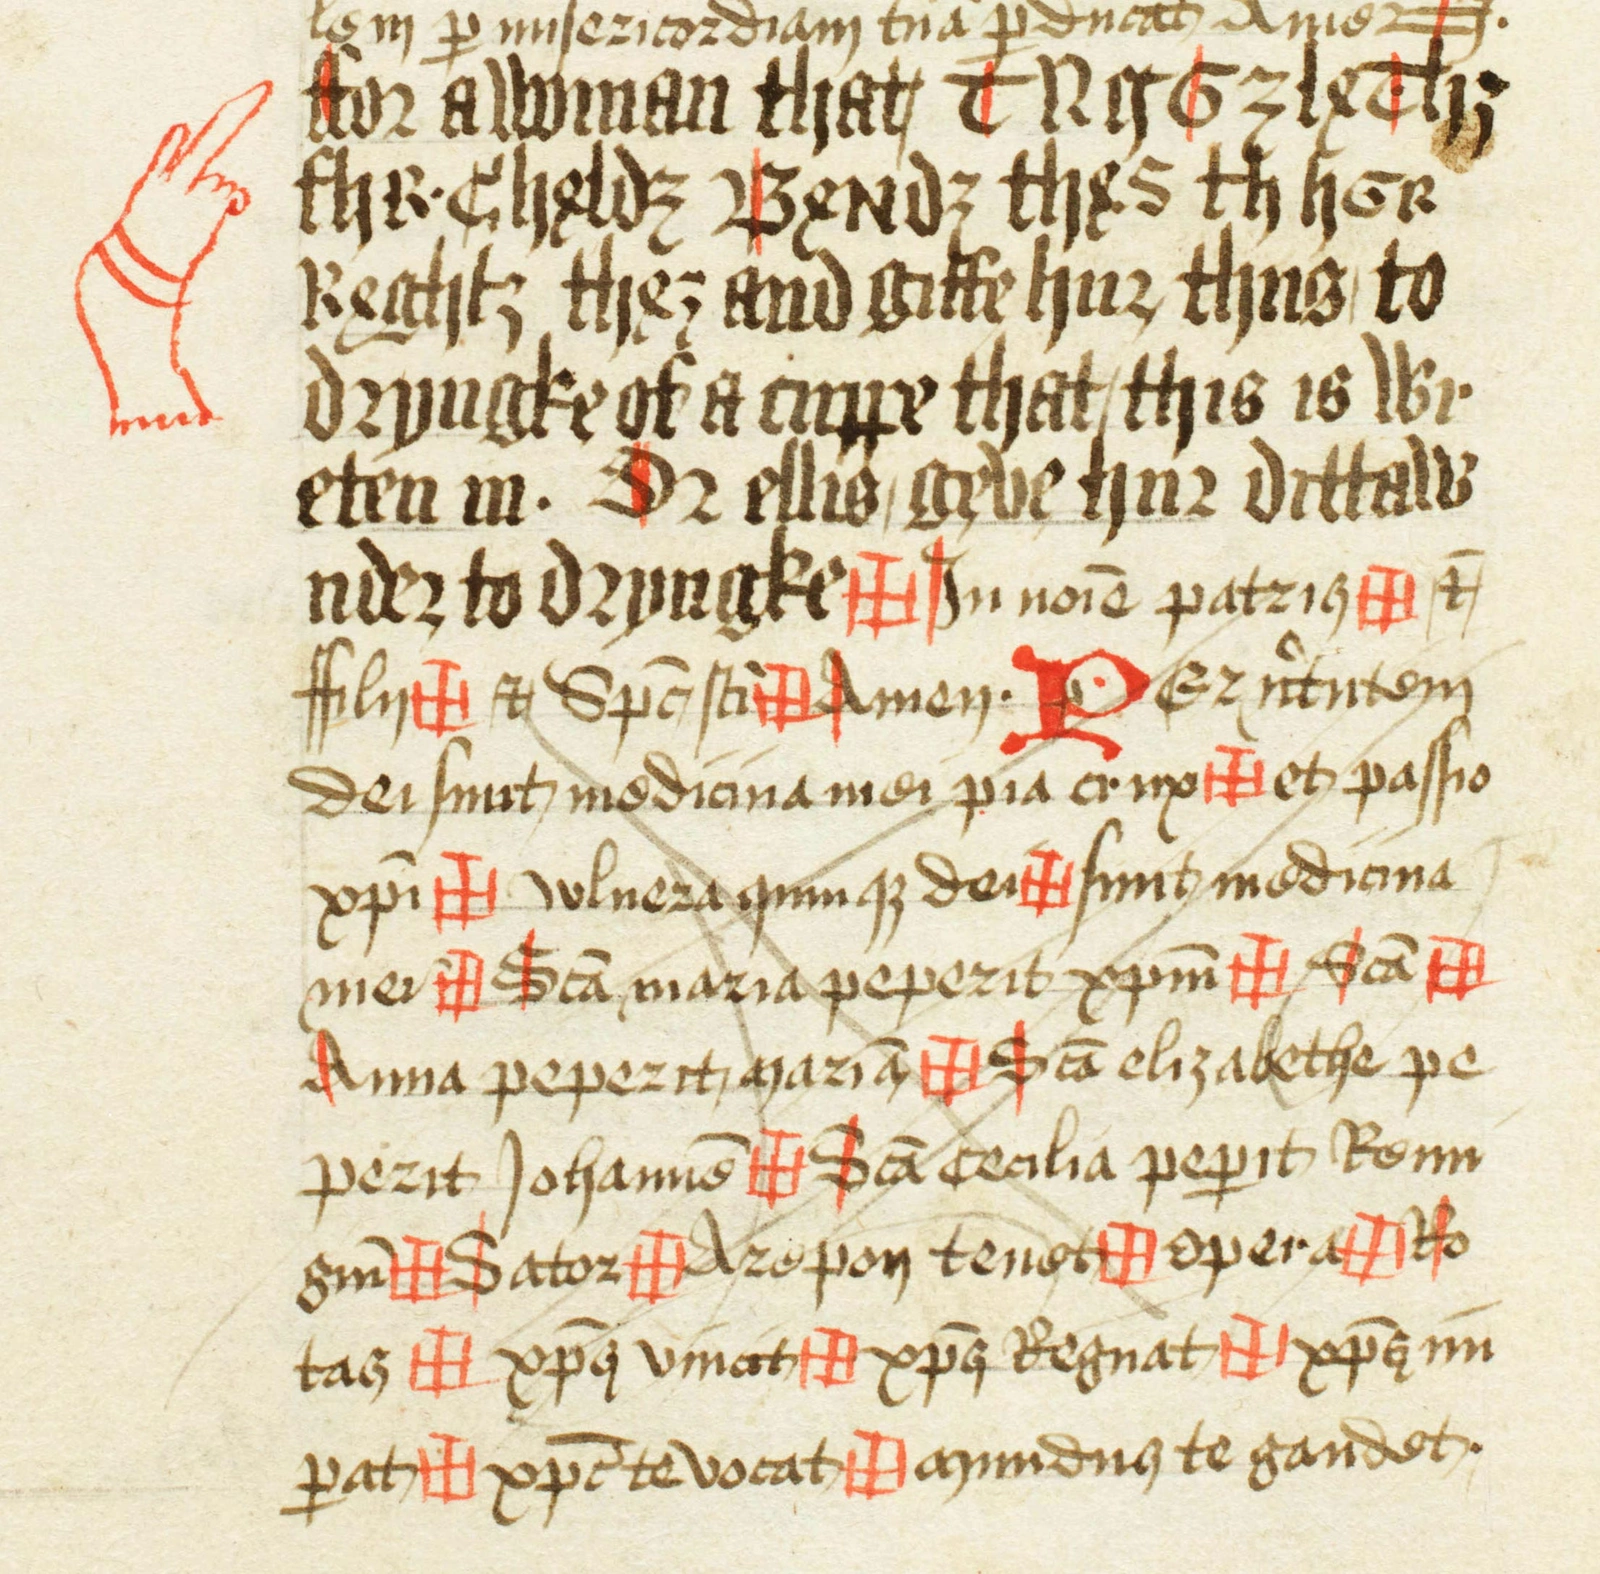 lem p misericordiam tuā pducat Amen
ffor a woman that TRGGZlxthz
thR. Chxldz Bxndz thxs th hGR
Rxghtz thxz and giffe hur thus to
dryngke of a cuppe that this is wr
eten in. Or ellis geve hur dittaw
nder to dryngke ✠ In noīe patris ✠ et
ffilij ✠ et Spc scī ✠ Amen. PEr virtutem
dei sunt medicina mei pia crux ✠ et passio
xp̄i ✠ wlnera quinqꝫ dei ✠ sunt medicina
mei ✠ Scā maria peperit xp̄m ✠ Scā ✠
Anna peperit mariā ✠ Scā elizabethe pe
perit Johannē ✠ Scā Cecilia pepit Remi
giū ✠ Sator ✠ Arepon tenet ✠ opera ✠ Ro
tas ✠ xp̄s vincit ✠ xp̄s Regnat ✠ xp̄s im
pat ✠ xp̄c te vocat ✠ mundus te gaudet.